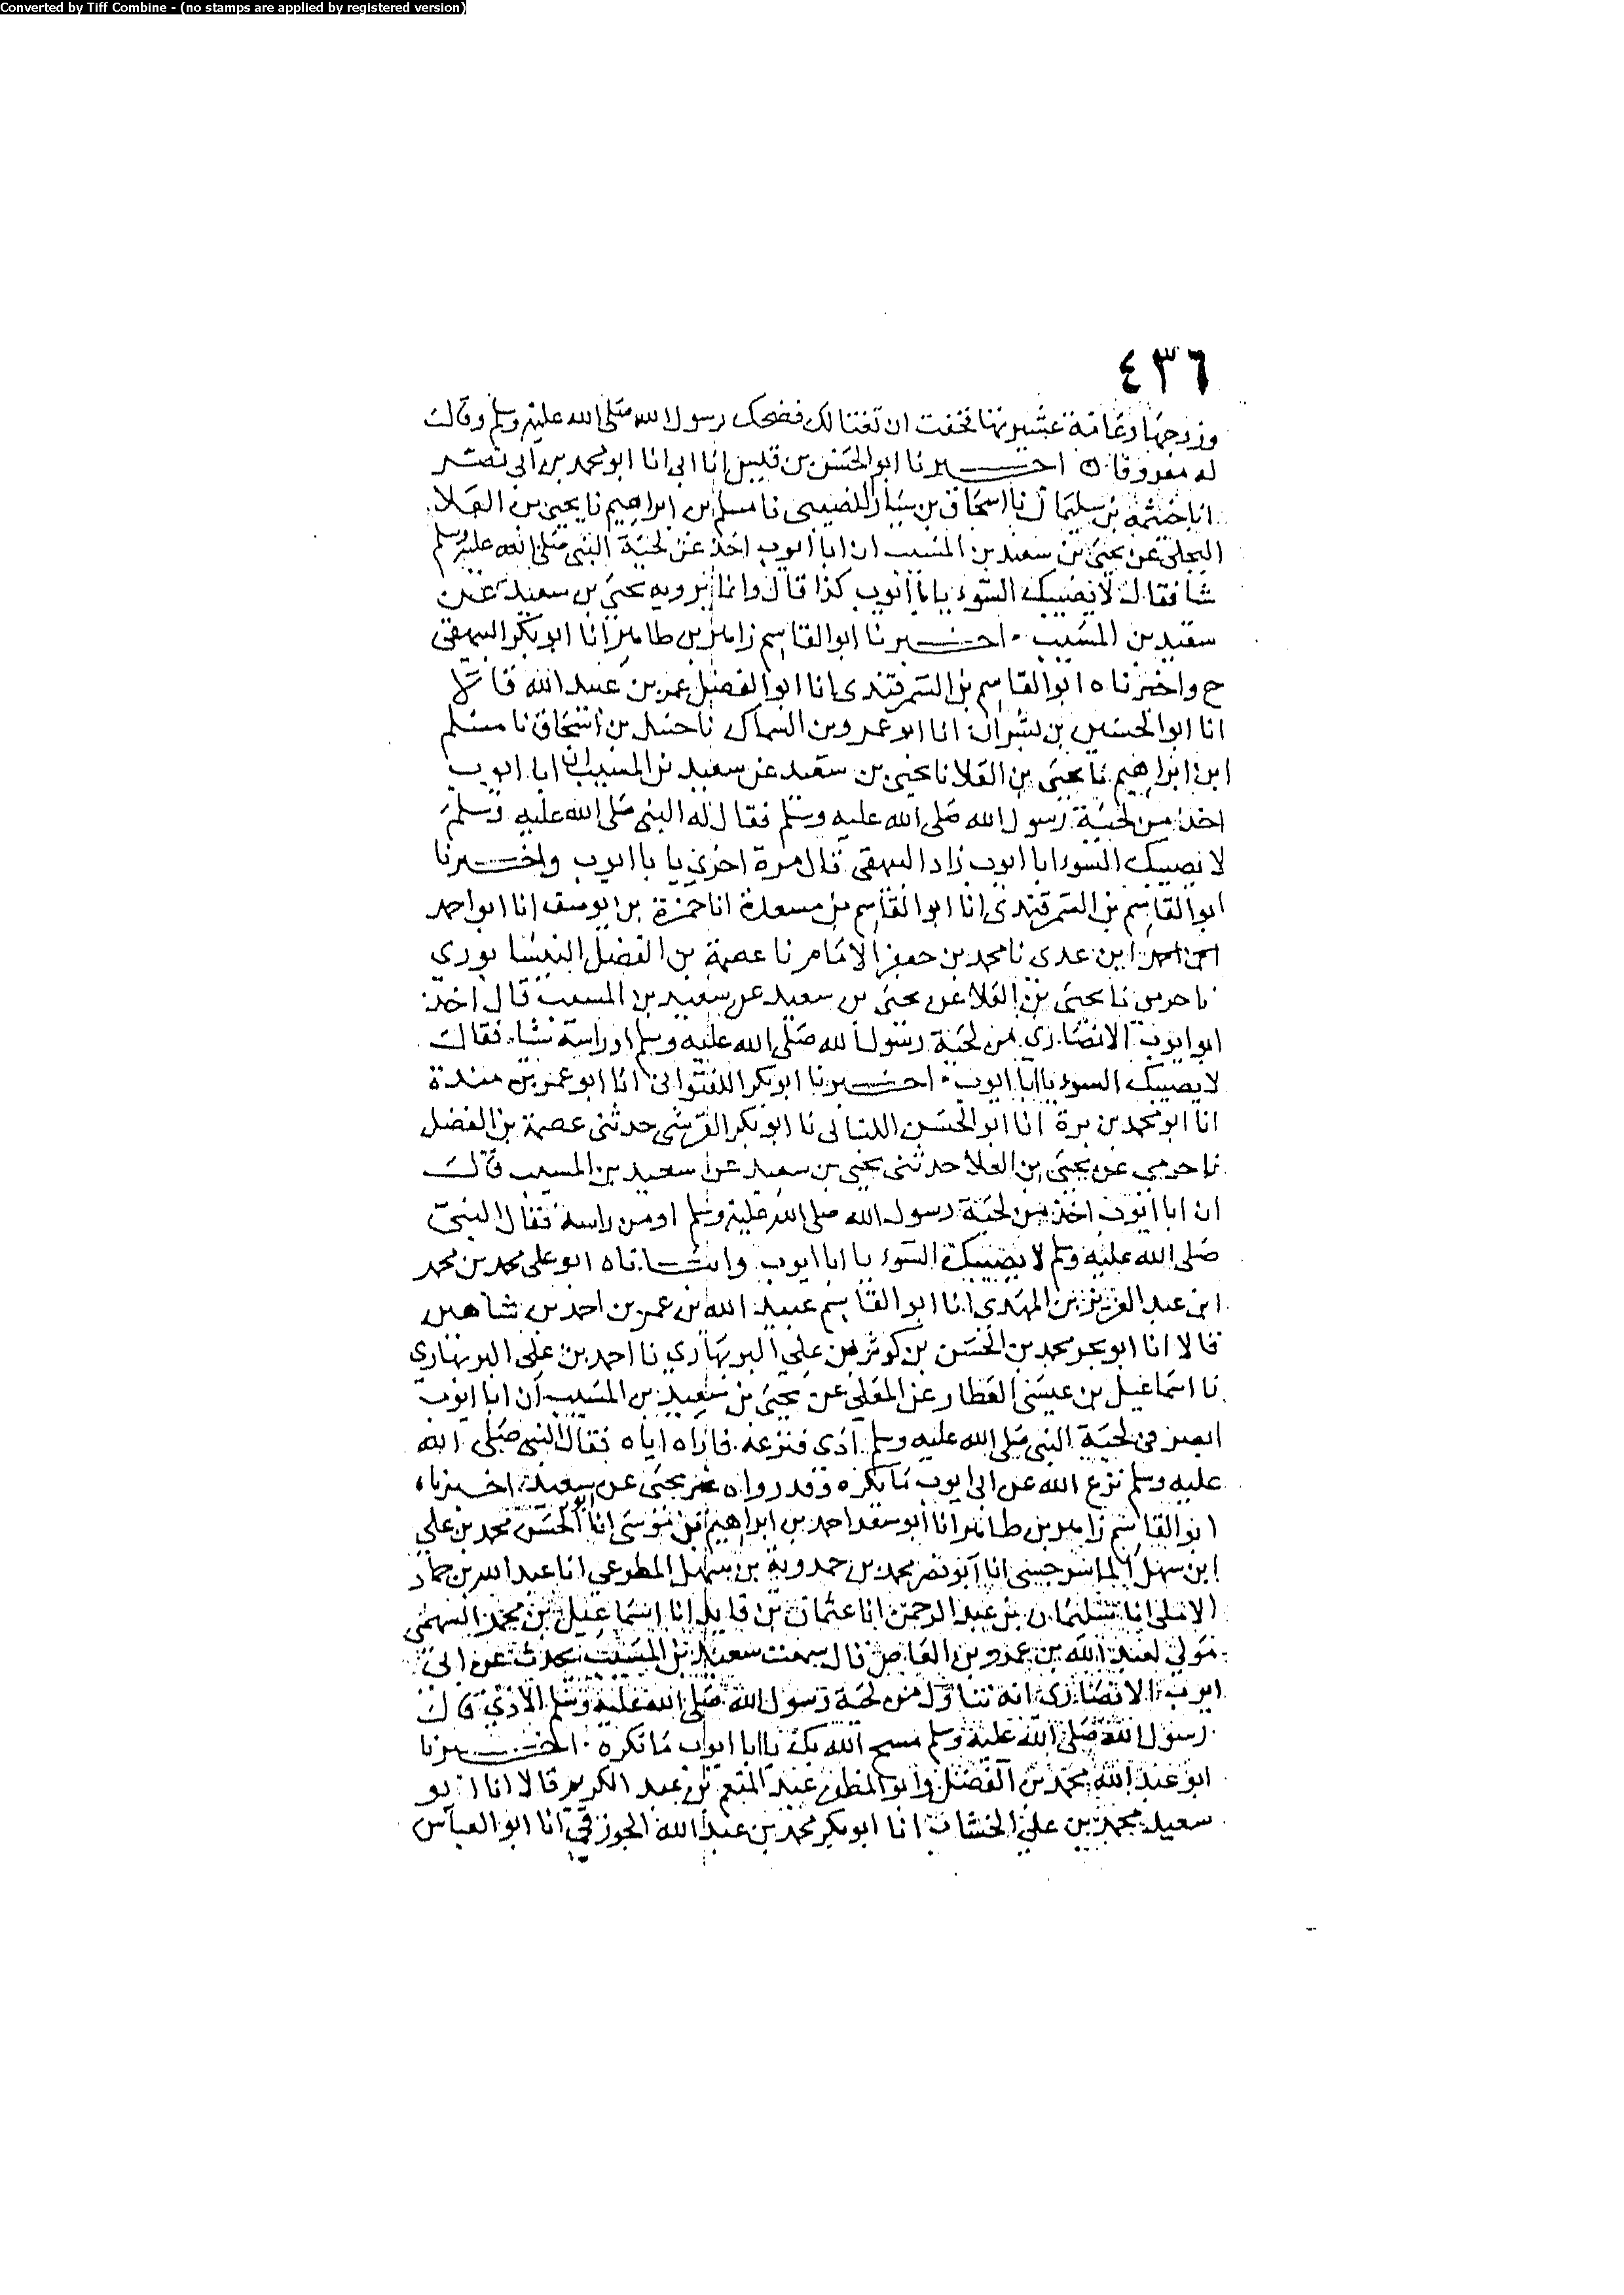 Converted by Tiff Combine - (no stamps are applied by registered version)
٤٣٦
وزوجها وعامة عشيرتها فخفت ان تغتالك فضحك رسول الله صلى الله عليه وسلم وقال
له معروفا اخبرنا ابو الحسن بن قبيس انا ابى انا ابو محمد بن ابى نصر
انا خيثمة بن سليمان نا اسحاق بن سيار النصيبى نا مسلم بن ابراهيم نا يحيى بن العلا
البجلى عن يحيى بن سعيد بن المسيب ان ابا ايوب اخذ عن لحية النبى صلى الله عليه وسلم
شا فقال لا يصيبك السوء يا ابا ايوب كذا قال وانما يرويه يحيى بن سعيد عن
سعيد بن المسيب اخبرنا ابو القاسم زاهر بن طاهر انا ابو بكر البيهقى
ح واخبرناه ابو القاسم بن السمرقندى انا ابو الفضل عمر بن عبيد الله قالا
انا ابو الحسين بن بشران انا ابو عمرو بن السماك نا حنبل بن اسحاق نا مسلم
ابن ابراهيم نا يحيى بن العلا نا يحيى بن سعيد عن سعيد بن المسيب ان ابا ايوب
اخذ من لحية رسول الله صلى الله عليه وسلم فقال له النبى صلى الله عليه وسلم
لا يصيبك السوء ابا ايوب زاد البيهقى قال مرة اخرى يا با ايوب واخبرنا
ابو القاسم بن السمرقندى انا ابو القاسم بن مسعدة انا حمزة بن يوسف انا ابو احمد
ابن عدى نا محمد بن جعفر الامام نا عصمة بن الفضل النيسابورى
نا حرمى نا يحيى بن العلا عن يحيى بن سعيد عن سعيد بن المسيب قال اخذ
ابو ايوب الانصارى من لحية رسول الله صلى الله عليه وسلم او راسه شا فقال
لا يصيبك السوء يا ابا ايوب اخبرنا ابو بكر اللفتوانى انا ابو عمر بن مندة
انا ابو محمد بن يوة انا ابو الحسن اللنبانى نا ابو بكر القرشى حدثنى عصمة بن الفضل
نا حرمى عن يحيى بن العلا حدثنى يحيى بن سعيد عن سعيد بن المسيب قال
ان ابا ايوب اخذ من لحية رسول الله صلى الله عليه وسلم او من راسه فقال النبى
صلى الله عليه وسلم لا يصيبك السوء يا ابا ايوب وانبأناه ابو على محمد بن محمد
ابن عبد العزيز بن المهدى انا ابو القاسم عبيد الله بن عمر بن احمد بن شاهين
قالا انا ابو بحر محمد بن الحسن بن كوثر بن على البربهارى نا احمد بن على البربهارى
نا اسماعيل بن عيسى العطار عن المعلى عن يحيى بن سعيد بن المسيب ان ابا ايوب
ابصر فى لحية النبى صلى الله عليه وسلم اذى فنزعه فاراه اياه فقال النبى صلى الله
عليه وسلم نزع الله عن ابى ايوب ما يكره وقد رواه غير يحيى عن سعيد اخبرناه
ابو القاسم زاهر بن طاهر انا ابو سعد احمد بن ابراهيم بن موسى انا ابو الحسن محمد بن على
ابن سهل الماسرجسى انا ابو نصر محمد بن حمدوية بن سهل المطوعى انا عبد الله بن حماد
الاملى انا سليمان بن عبد الرحمن انا عثمان بن فايد انا اسماعيل بن محمد السهمى
مولى لعبد الله بن عمرو بن العاص قال سمعت سعيد بن المسيب يحدث عن ابى
ايوب الانصارى انه تناول من لحية رسول الله صلى الله عليه وسلم الاذى قال
رسول الله صلى الله عليه وسلم مسح الله بك يا ابا ايوب ما تكره اخبرنا
ابو عبد الله محمد بن الفضل وابو المظفر عبد المنعم بن عبد الكريم قالا انا ابو
سعيد محمد بن على الخشاب انا ابو بكر محمد بن عبد الله الجوزقى انا ابو العباس